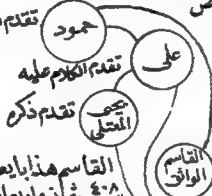 تقدم
حمود
على
تقدم الكلام عليه
يحيى
المعتلى
تقدم ذكره
القاسم
الواثق
القاسم هذا بايع